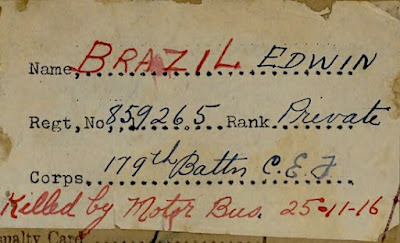 Name, BRAZIL EDWIN
Regt, No, 859265 Rank Private
Corps 179th Battn C.E.F
Killed by Motor Bus. 25-11-16
Casualty Card